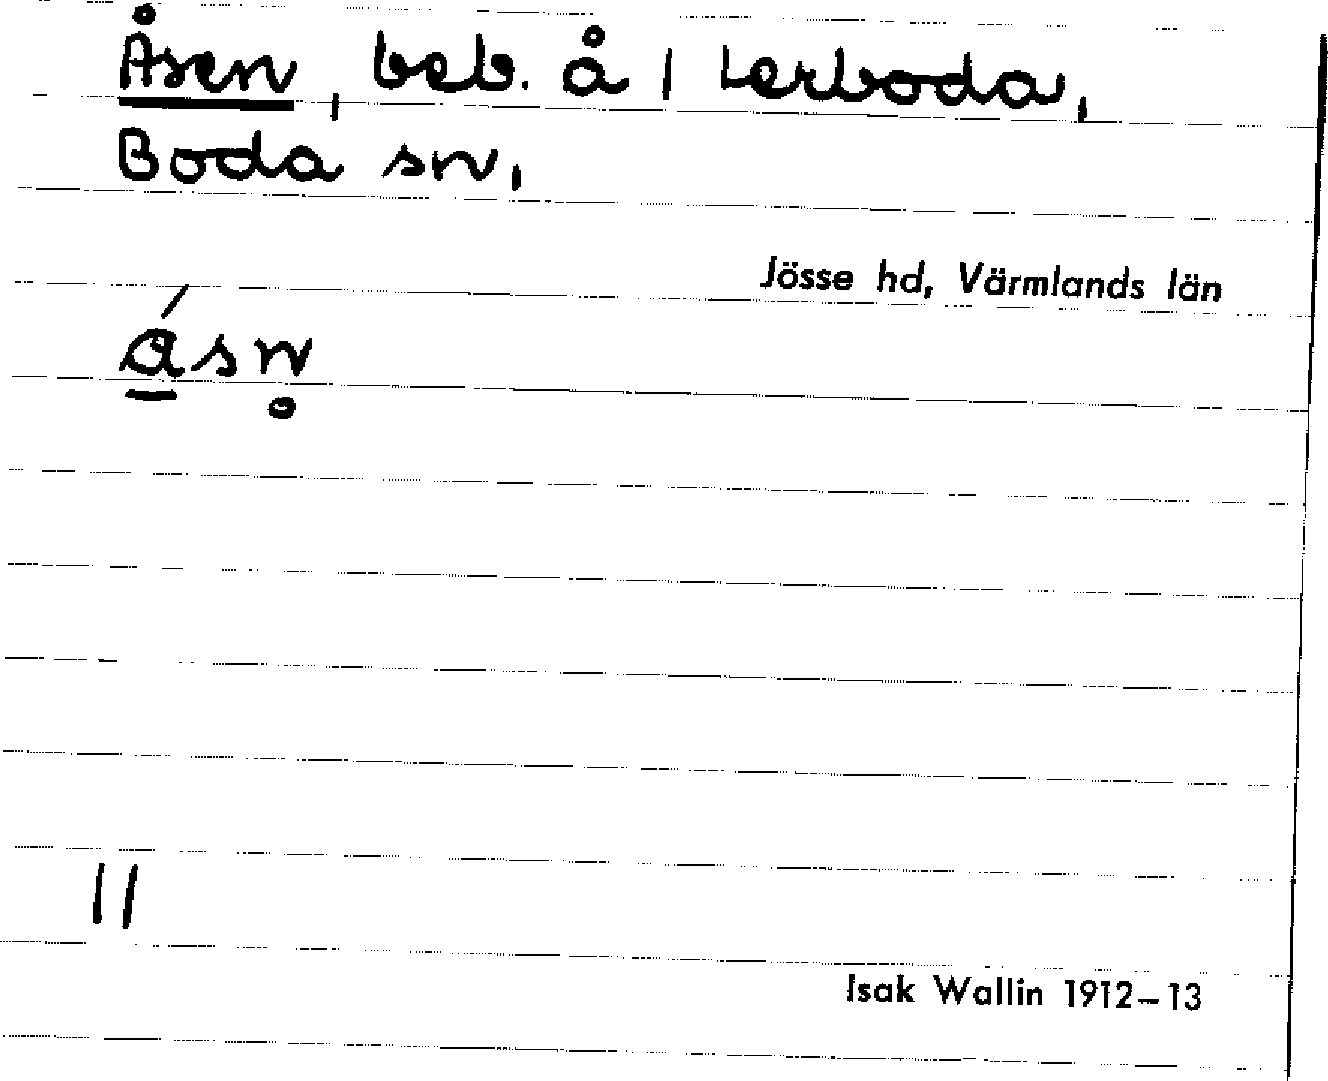 Åsen, beb. å 1 Lerboda,
Boda sn,
Jösse hd, Värmlands län
ásn̥
11
Isak Wallin 1912–13